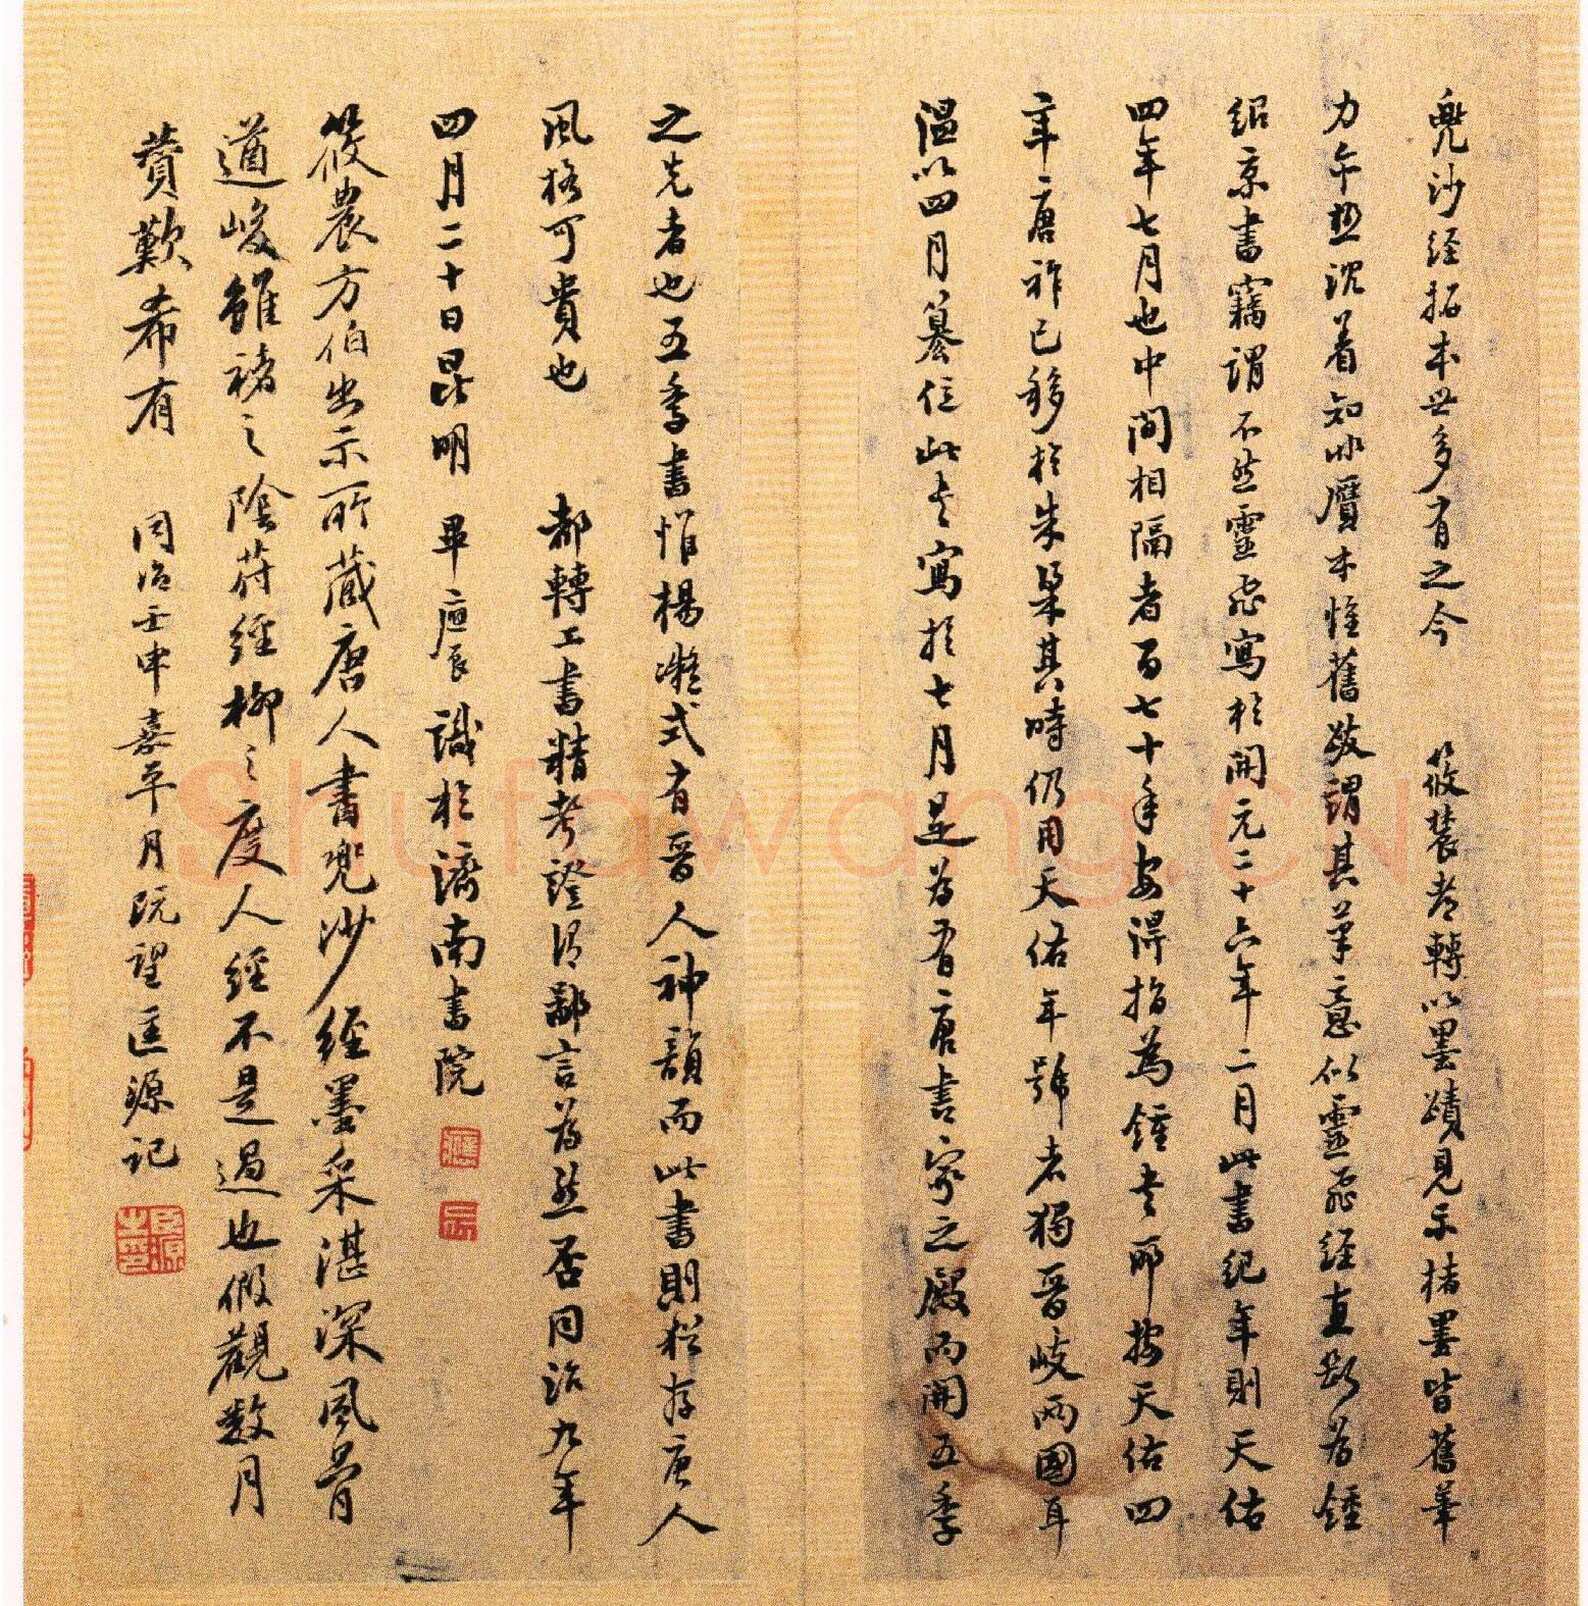 兜沙经拓本世多有之今 筱農都轉以墨蹟見示楮墨皆舊筆
力亦甚沉着知非贋本惟舊跋謂其筆意似靈飛经直题为鍾
紹京書竊謂不然靈飛寫於開元二十六年二月此書紀年則天佑
四年七月也中間相隔者百七十年安得指為鍾書耶按天佑四
年唐祚已移於朱梁其時仍用天佑年號者獨晉岐兩國耳
温以四月篡位此书寫於七月是为有唐書家之殿而開五季
之先者也五季書惟楊凝式有晉人神韻而此書則猶存唐人
風格可貴也 都轉工書精考證得鄙言为然否同治九年
四月二十日昆明 畢應辰識於濟南書院
筱農方伯出示所藏唐人書兜沙經墨采湛深風骨
遒峻雖褚之陰符經柳之度人經不是過也假觀数月
賛歎希有 同治壬申嘉平月阮望匡源記
應
辰
匡源之印
Shufawang.CN